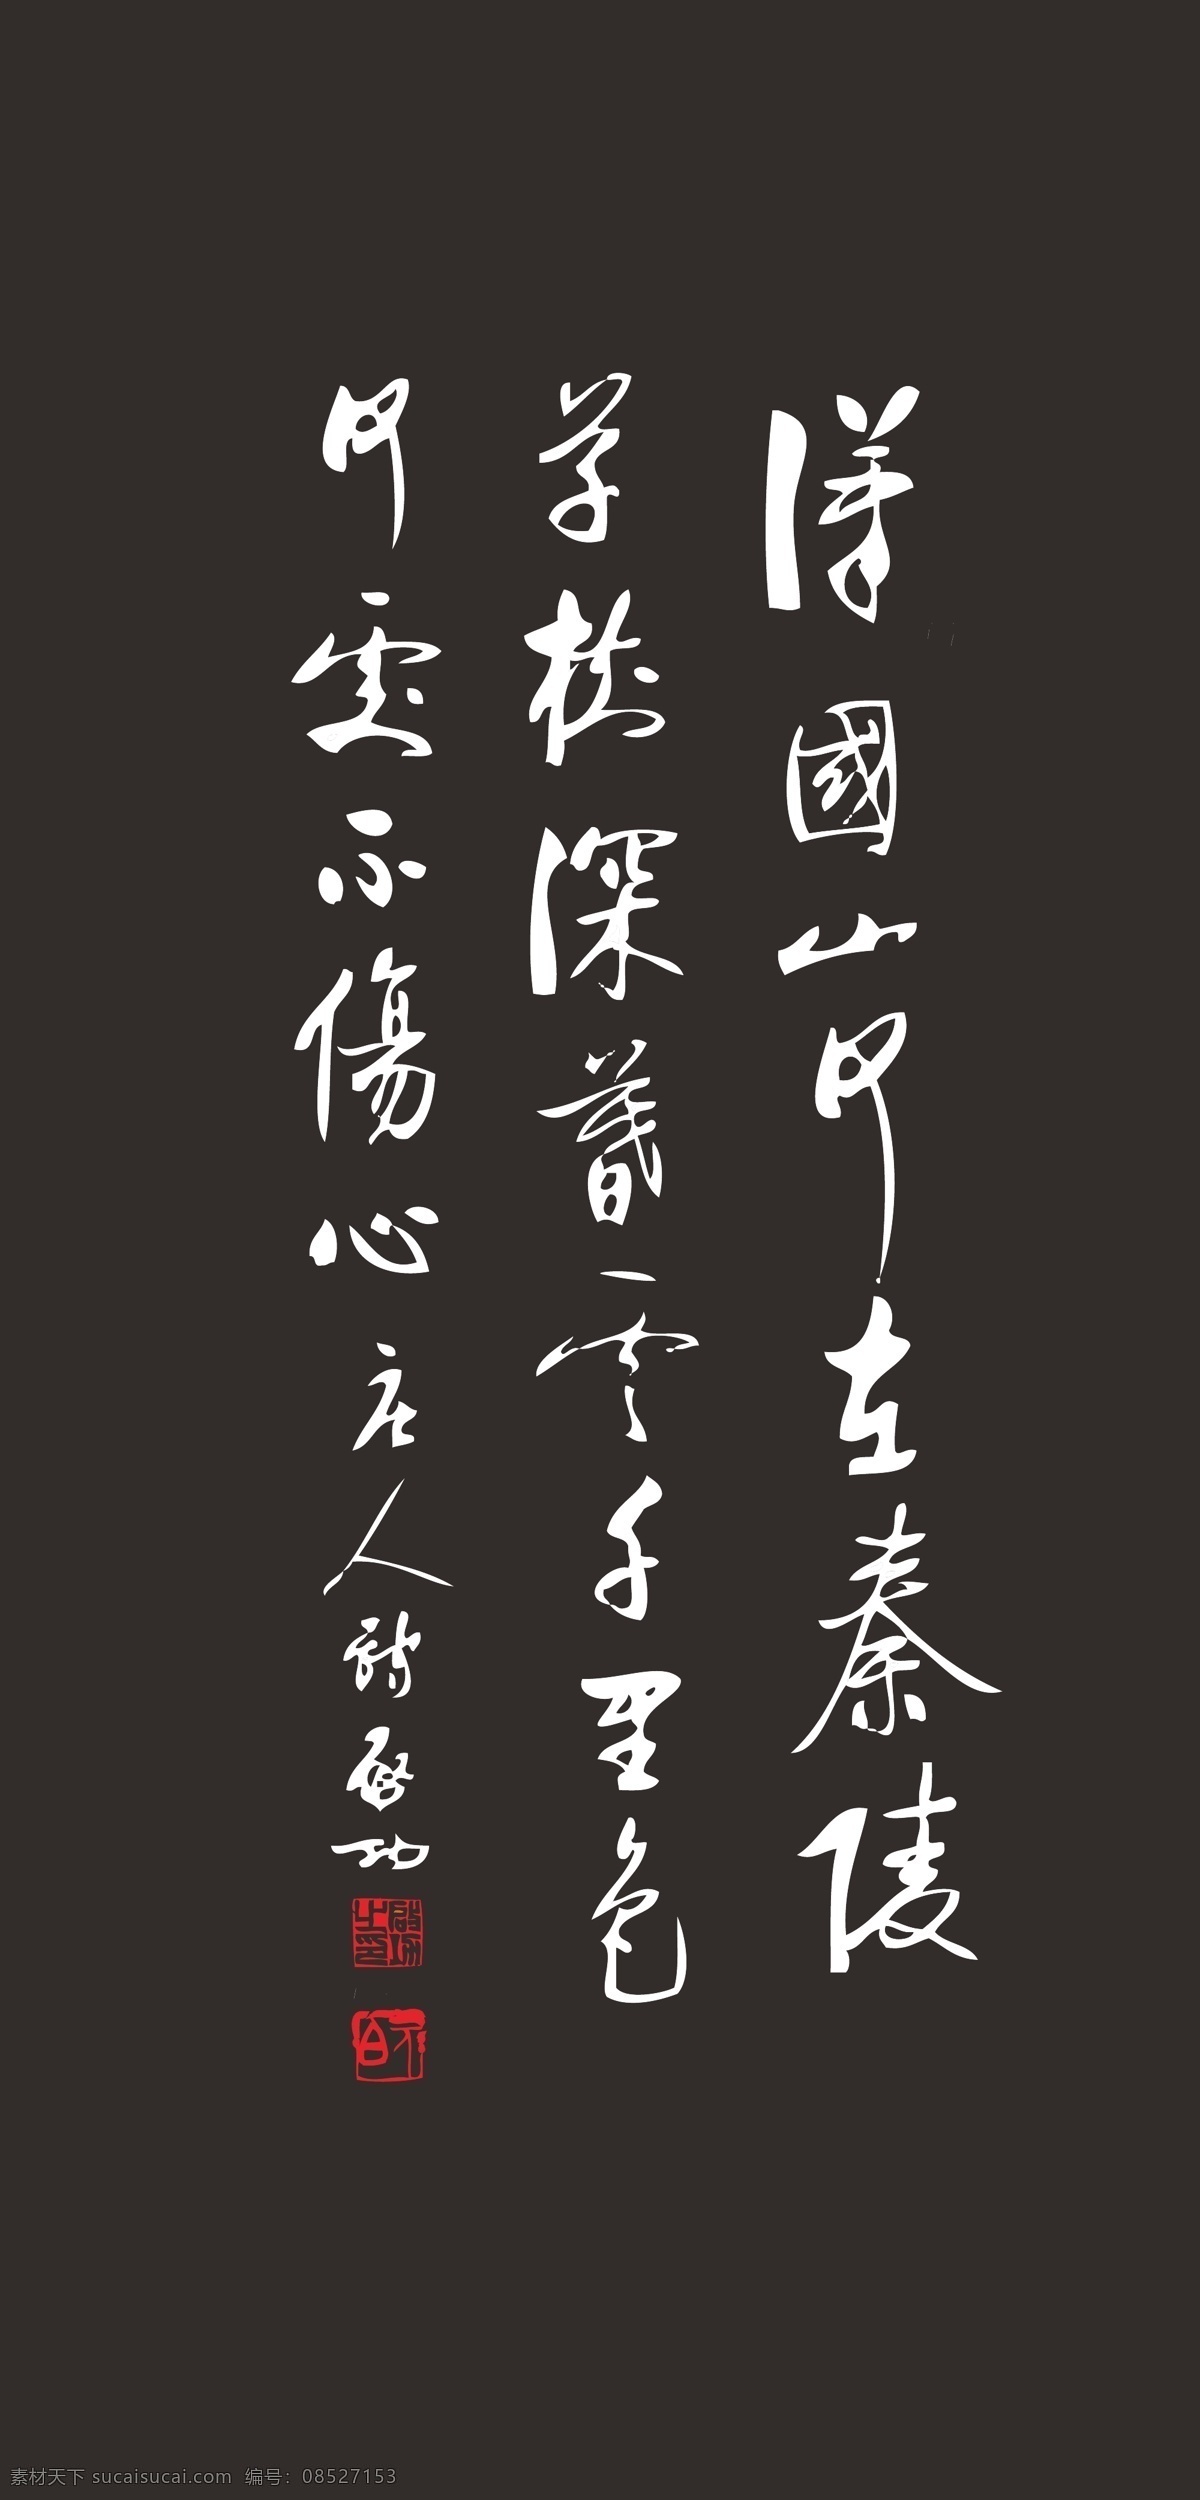 漢國山河在秦陵
草樹深暮雲千里色
何處不傷心唐人詩啓功
素材天下 sucaisucai.com 编号：08527153